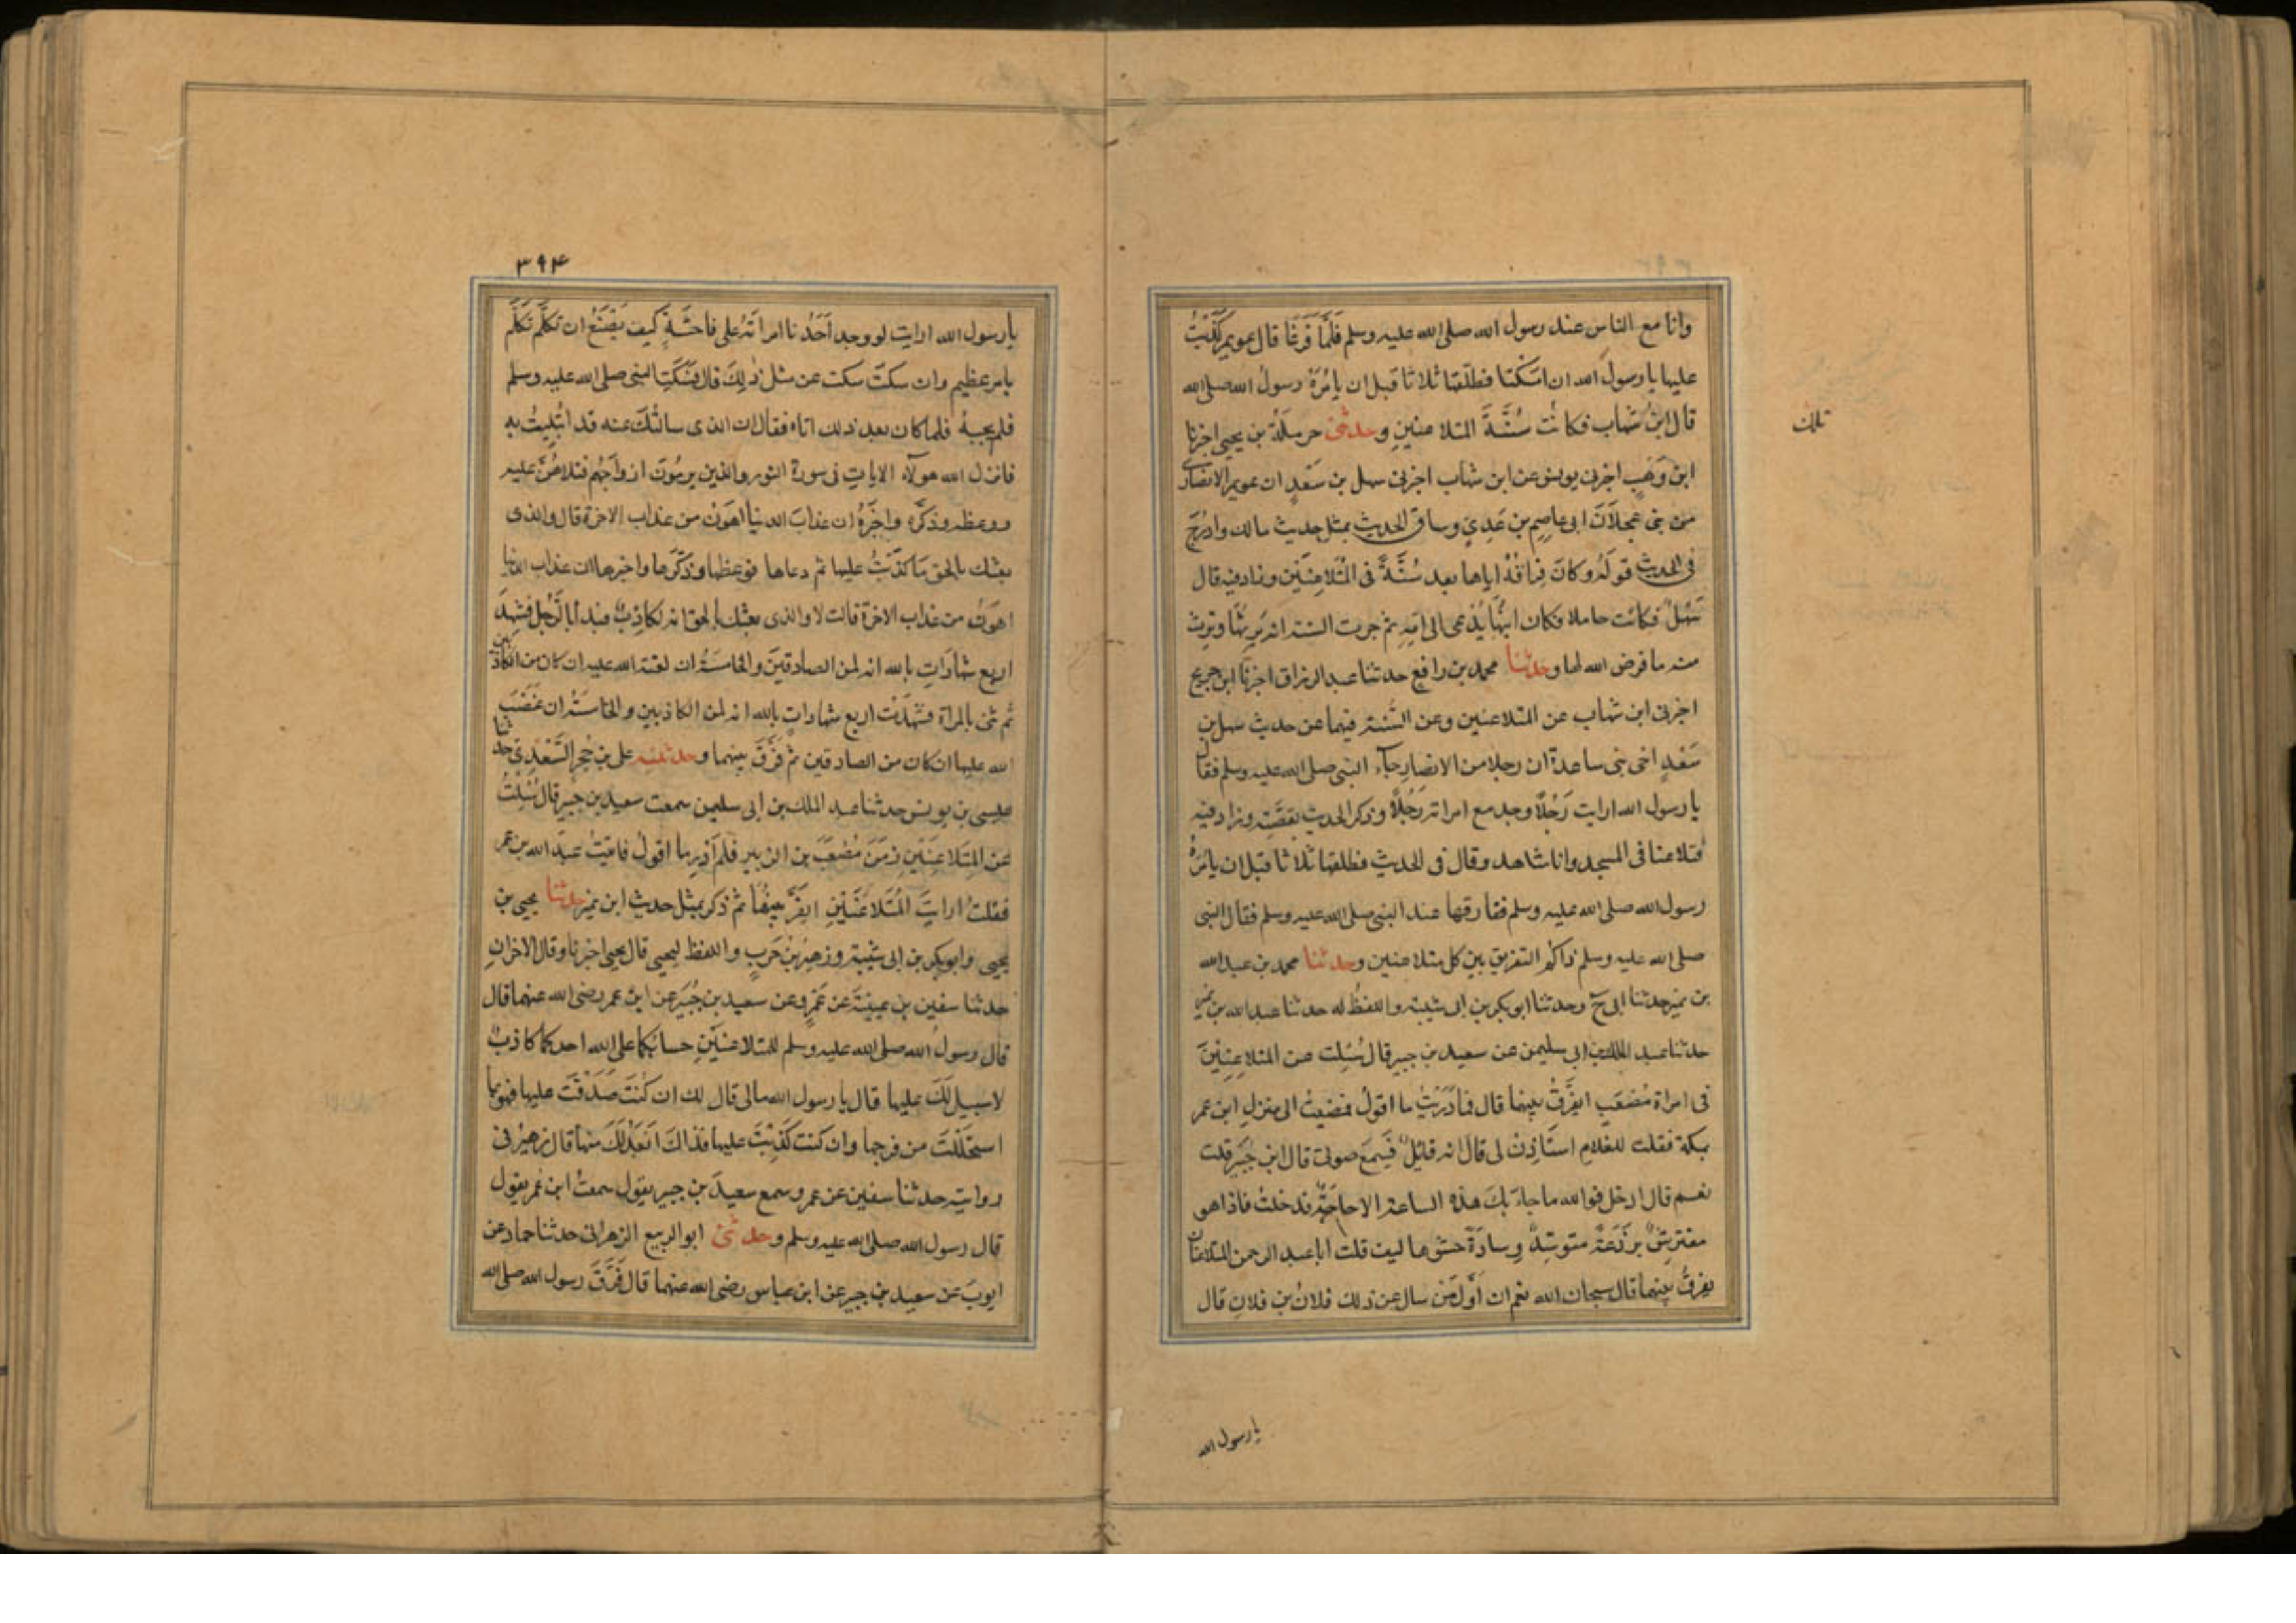 وانا مع الناس عند رسول الله صلى الله عليه وسلم فلمّا فرغا قال عويمر كذبتُ
عليها يا رسول الله ان امسكتها فطلّقها ثلاثا قبل ان يامُرَهُ رسولُ الله صلى الله
قال ابنُ شهاب فكانت سُنَّةَ المتلاعنينِ وحدثنى حرملَةُ بن يحيى اخبرنا
ثلث
ابن وَهبٍ اخبرنى يونس عن ابن شهاب اخبرنى سهل بن سَعْدٍ ان عويمر الانصارى
من بنى عجلانَ اتى عاصِم بن عَدِىٍ وساق الحديث بمثل حديث مالك وادرَجَ
فى الحديث قولَهُ وكانَ فِراقُهُ اياها بعد سُنَّةً فى المُتَلاعِنَيْنِ وزاد فيه قال
سَهْلٌ فكانت حاملا فكان ابنُها يُدْعى الى امِّهِ ثم جرت السنة انه يَرِثُها وترث
منه ما فرض الله لها وحدثنا محمد بن رافع حدثنا عبد الرزاق اخبرنا ابن جريج
اخبرنى ابن شهاب عن المتلاعنين وعن السُّنة فيهما عن حديث سهل بن
سَعْدٍ اخى بنى ساعدة ان رجلا من الانصار جآء النبى صلى الله عليه وسلم فقال
يا رسول الله ارايت رَجُلًا وجد مع امراته رَجُلًا وذكر الحديث بقصَّتِه وزاد فيه
فتلاعنا فى المسجد وانا شاهد وقال فى الحديث فطلقها ثلاثا قبل ان يامُرَهُ
رسول الله صلى الله عليه وسلم ففارقها عند النبى صلى الله عليه وسلم فقال النبى
صلى الله عليه وسلم ذاكُم التفريق بين كل متلاعنين وحدثنا محمد بن عبد الله
بن نمير حدثنا ابى ح وحدثنا ابو بكر بن ابى شيبة واللفظُ له حدثنا عبد الله بن نمير
حدثنا عبد الملك بن ابى سليمن عن سعيد بن جبير قال سُئِلت عن المتلاعِنَيْنِ
فى امراة مُصْعَبٍ ايفَرَّقُ بينهما قال فما دَرَيْتُ ما اقولُ فمضيتُ الى منزل ابن عمر
بمكة فقلت للغلام استَاذِنْ لى قال انه قائِلٌ فسَمِعَ صوتى قال ابن جُبَيْر قلت
نعم قال ادخل فوالله ما جاءَ بكَ هذه الساعة الا حاجَةٌ فدخلتُ فاذا هو
مفترِشٌ برْذَعَةً متوسِّدٌ وِسادَةً حشوها ليف قلت ابا عبد الرحمن المتلاعنان
يفرقُ بينهما قال سبحان الله نعم ان اوّلَ مَن سال عن ذلك فلانُ بن فلانٍ قال
يا رسول الله
٣٩٤
يا رسول الله ارايت لو وجد اَحَدُنا امراتَهُ على فاحشَةٍ كيف يَصْنَعُ ان تكلَّم تكلَّم
بامر عظيم وان سكتَ سكت عن مثل ذٰلِكَ قال فسَكَتَ النبى صلى الله عليه وسلم
فلم يجبهُ فلما كان بعد ذلك اتاه فقال ان الذى سالتُكَ عنه قد ابْتُلِيتُ به
فانزل الله هولآء الايات فى سورة النور والذين يرمُون ازواجَهُم فتلاهُنّ عليه
ووعظه وذكَّره واخبَرَهُ ان عذابَ الدنيا اهوَنُ من عذاب الاخرة قال والذى
بعثك بالحق مَا كَذَبْتُ عليها ثم دعاها فوعظها وذكّرها واخبرها ان عذاب الدنيا
اهوَنُ من عذاب الاخرة قالت لا والذى بعثك بالحق انه لكاذِبٌ فبدأ بالرَّجُلِ فشهِدَ
اربع شهادَاتٍ بالله انه لمن الصادقينَ والخامسَةُ ان لعنة الله عليه ان كان من الكاذبين
ثم ثنى بالمراة فشَهِدَت اربع شهاداتٍ بالله انه لمن الكاذبين والخامسَة ان غضَبَ
الله عليها ان كان من الصادقين ثم فرَّقَ بينهما وحدثنيه على بن حُجرٍ السَّعْدِىّ حدثنا
عيسى بن يونس حدثنا عبد الملك بن ابى سليمن سمعت سعيد بن جبير قال سُئِلْتُ
عن المُتَلاعِنَيْنِ زمَنَ مُصْعَبَ بن الزبير فلم اَدْرِ ما اقولُ فاتيْتُ عبدَ الله بن عمر
فقلت ارايتَ المُتَلاعنَيْنِ ايفَرَّقُ بينهُما ثم ذكر بمثل حديث ابن نمير حدثنا يحيى بن
يحيى وابو بكر بن ابى شيْبَة وزهيرُ بنُ حَربٍ واللفظ ليحيى قال يحيى اخبرنا وقال الاخرانِ
حدثنا سفين بن عيينَةَ عن عَمْرٍو عن سعيد بن جُبَيْر عن ابن عمر رضى الله عنهما قال
قال رسولُ الله صلى الله عليه وسلم للمتلاعنَيْنِ حسابُكُما على الله احدكما كاذبٌ
لا سبيلَ لَكَ عليها قال يا رسول الله مالى قال لك ان كُنتَ صَدَقْتَ عليها فهو بما
استحلَلْتَ من فرجها وان كنت كَذَبْتَ عليها فذاكَ اَبْعَدُ لَكَ منها قال زهيرٌ فى
روايته حدثنا سفين عن عمرو سمع سعيدَ بن جبير يقول سمعتُ ابن عُمر يقول
قال رسول الله صلى الله عليه وسلم وحدثنى ابو الربيع الزهرانى حدثنا حماد عن
ايوبَ عن سعيد بن جبير عن ابن عباس رضى الله عنهما قال فَرَّقَ رسول الله صلى الله